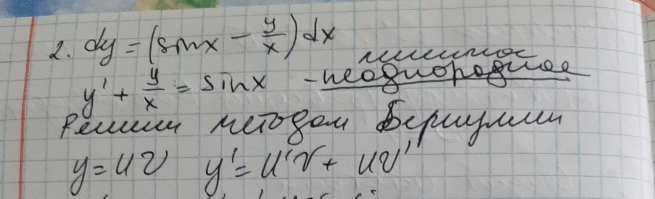 2. dy = (sinx - y/x) dx
линейное
y' + y/x = sinx - неоднородное
Решим методом Бернулли
y = uv y' = u'v + uv'